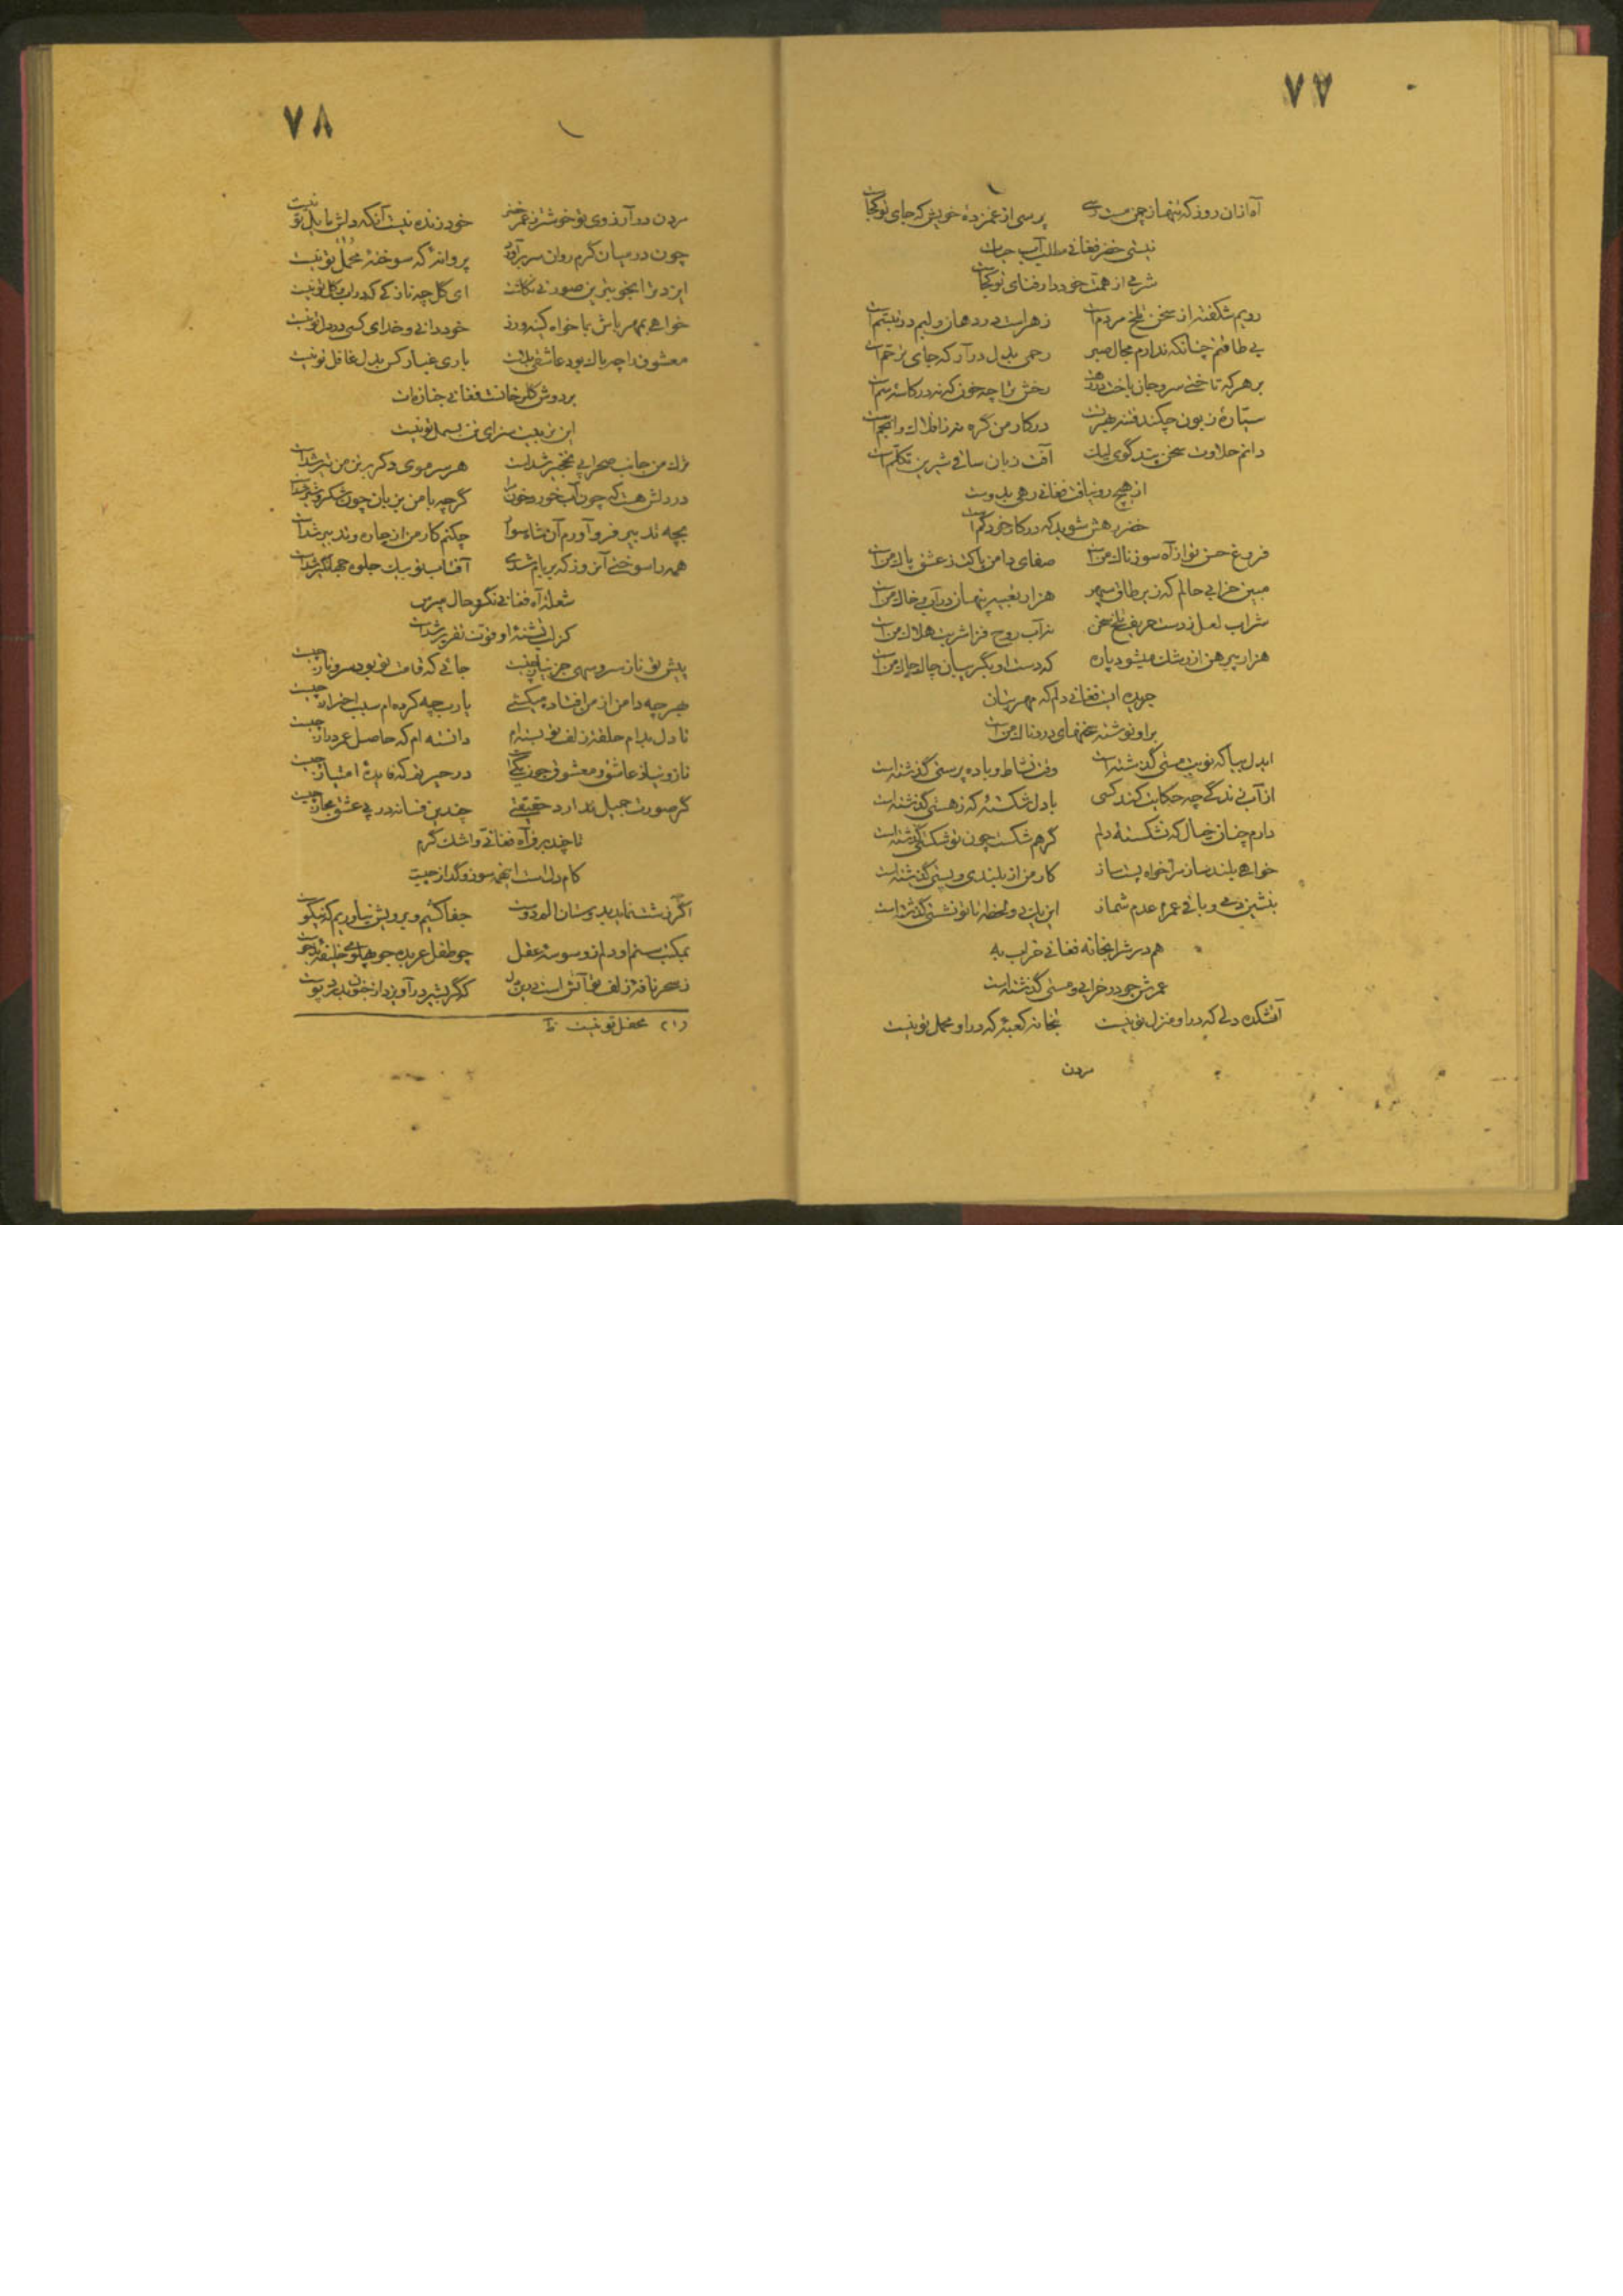 ۷۷
آه ازان روز که تنها ز چمن مست رسی پرسی از غمزدهٔ خویش که جای تو کجاست
نیستی خضر فغانی مطلب آب حیات
شرمی از همت خود دار فنای تو کجاست
رویم شکفته از سخن تلخ مردم است زهر است در دهان و لبم در تبسم است
بی طاقتم چنانکه ندارم مجال صبر رحمی بدل درآر که جای ترحم است
بر هر که تاختی سر و جان باخت در رهت رخش ترا چه خون که نه در کاسهٔ سم است
سیارهٔ زبون چکند فتنه هجرت در کار من گره نه ز افلاک و انجم است
دانم حلاوت سخن پندگوی لیک آفت زبان ساقی شیرین تکلم است
از هیچ رو نیافت فغانی رهی بدوست
خضر رهش شوید که در کار خود گم است
فروغ حسن تو از آه سوزناک من است صفای دامن پاکت ز عشق پاک من است
مبین خرابی حالم که زیر طاق سپهر هزار تعبیه پنهان در آب و خاک من است
شراب لعل ز دست حریف تلخ سخن نه آب روح فزا شربت هلاک من است
هزار پیرهن از رشک میشود پاره که دست او بگریبان چاک چاک من است
جریده ایست فغانی دلم که مهر بتان
براو نوشته غمهای دردناک من است
ایدل بیا که نوبت مستی گذشته است وقت نشاط و باده پرستی گذشته است
از آب زندگی چه حکایت کند کسی با دل شکستهٔ که ز هستی گذشته است
دارم چنان خیال که نشکستهٔ دلم گر هم شکست چون تو شکستی گذشته است
خواهی بلند ساز مرا خواه پست ساز کار من از بلندی و پستی گذشته است
بنشین دمی و باقی عمرم عدم شمار این یک دو لحظه تا تو نشستی گذشته است
هم در شرابخانه فغانی خراب به
عمرش چو در خرابی و مستی گذشته است
آتشکده دلی که در او منزل تو نیست بتخانه کعبهٔ که در او محمل تو نیست
مردن
۷۸
مردن در آرزوی تو خوشتر ز عمر خضر خود زنده نیست آنکه دلش مایل تو نیست
چون در میان گرم روان سر برآورد پروانهٔ که سوختهٔ محمل (۱) تو نیست
ایزد ترا بخوبتر ین صورتی نگاشت ای گل چه نازکی که در آب و گل تو نیست
خواهی بمهر باش بما خواه کینه ورز خود دانی و خدای کسی در دل تو نیست
معشوق را چه باک بود عاشقی بلاست باری غبار کس بدل غافل تو نیست
بر دوش گلرخانست فغانی جنازه ات
این تربیت سزای تن بسمل تو نیست
ترک من جانب صحرا پی نخجیر شدست هر سر موی دگر بر تن من تیر شدست
در دلش هست که چون آب خورد خون مرا گرچه با من بزبان چون شکر و شیر شدست
بچه تدبیر فرو آورم آن شاه سوار چکنم کار من از چاره و تدبیر شدست
همه را سوختی آنروز که بر بام شدی آفتاب تو بیک جلوه جهانگیر شدست
شعلهٔ آه فغانی نگر و حال مپرس
کز لب تشنهٔ او قوت تقریر شدست
پیش تو ناز سرو سهی جز نیاز چیست جائی که قامت تو بود سرو ناز چیست
بهر چه دامن از من افتاده میکشی یارب چه کرده ام سبب احتراز چیست
تا دل بدام حلقهٔ زلف تو بسته ام دانسته ام که حاصل عمر دراز چیست
ناز و نیاز عاشق و معشوق چون یکیست در حیرتم که فایدهٔ امتیاز چیست
گر صورت جمیل ندارد حقیقتی چندین فسانه در پی عشق مجاز چیست
تا چند بر فغانی و اشک گرم
کام دل است اینهمه سوز و گداز چیست
اگر ز شست نماید بدوستان الم دوست جفا کشیم و برویش نیاوریم که نیکوست
بمکتب ستم او دلم ز وسوسهٔ عقل چو طفل عربده جو پهلوی خلیفهٔ بدخوست
ز سحر نافهٔ زلف تو آتش است درین دل
(۱) محفل تو نیست ظ